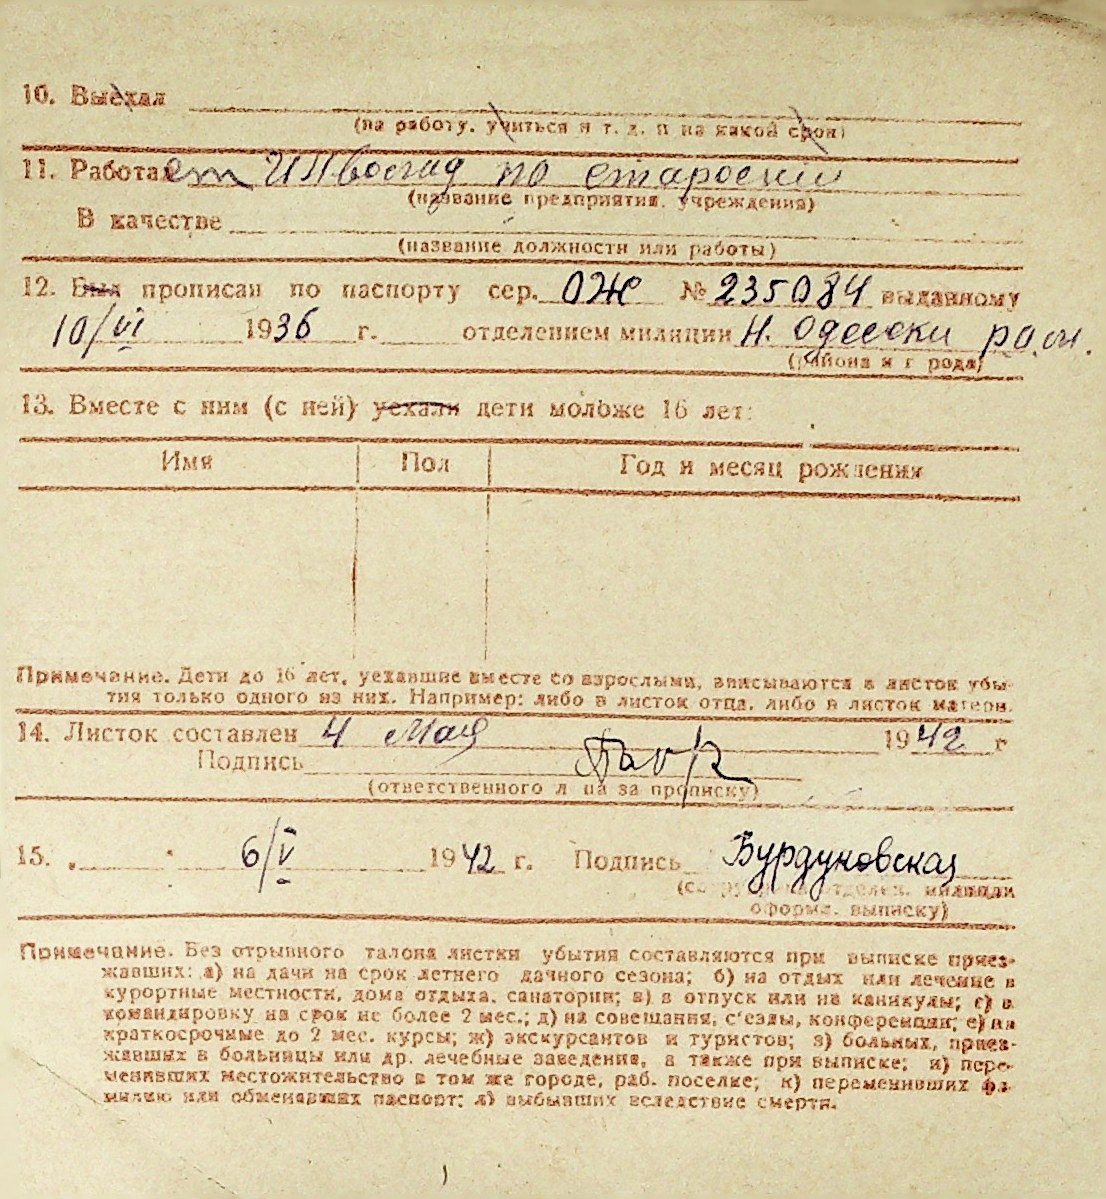 10. Выехал
(на работу, учиться и т. д. и на какой срок)
11. Работает по старости
(название предприятия, учреждения)
В качестве
(название должности или работы)
12. Был прописан по паспорту сер. ОЖ № 235084 выданному
10/VI 1936 г. отделением милиции Н. Одесски
(района и города)
13. Вместе с ним (с ней) уехали дети моложе 16 лет:
Имя Пол Год и месяц рождения
Примечание. Дети до 16 лет, уехавшие вместе со взрослыми, вписываются в листок убы-
тия только одного из них. Например: либо в листок отца, либо в листок матери.
14. Листок составлен 4 Мая 1942 г
Подпись
(ответственного лица за прописку)
15. 6/V 1942 г. Подпись Бурдуковская
(сотрудника отделен. милиции
оформл. выписку)
Примечание. Без отрывного талона листки убытия составляются при выписке приез-
жавших: а) на дачи на срок летнего дачного сезона; б) на отдых или лечение в
курортные местности, дома отдыха, санатории; в) в отпуск или на каникулы; г) в
командировку на срок не более 2 мес.; д) на совещания, с'езды, конференции; е) на
краткосрочные до 2 мес. курсы; ж) экскурсантов и туристов; з) больных, приез-
жавших в больницы или др. лечебные заведения, а также при выписке; и) пере-
менивших местожительство в том же городе, раб. поселке; к) переменивших фа-
милию или обменявших паспорт; л) выбывших вследствие смерти.